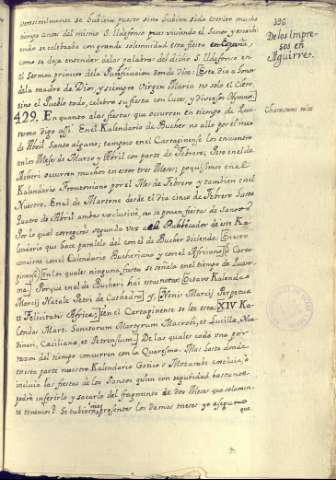 verosimilmente se hubiera puesto sino hubiera sido escrito mucho
tiempo antes del mismo S. Ildefonso, pues viviendo el Santo y escribi-
endo se celebraba con grande solemnidad esta fiesta en España,
como se deja entender delas palabras del dicho S. Ildefonso en
el sermon primero dela Purificacion donde dice: Este dia a honor
dela madre de Dios, y siempre Virgen Maria no solo el Clero,
sino el Pueblo todo, celebra su fiesta con luces, y diversos Hymnos.
429. En quanto alas fiestas que ocurren en tiempo de Qua-
resma digo assi. En el Kalendario de Bucher no allo por el mes
de Abril Santo alguno; tampoco en el Cartaginense los encuentro
en los Meses de Marzo y Abril con parte de Febrero; Pero en el de
Alberi ocurren muchos en estos tres Meses; poquissimos en el
Kalendario Frontoniano por el Mes de Febrero y tambien en el
Nuestro. En el de Martene desde el dia cinco de Febrero hasta
quatro de Abril ambos exclusive, no se ponen fiestas de Santos.
Por lo qual corregirás segunda vez al Publicador de este Ka-
lendario que hace paralelo del con el de Bucher diciendo: Convie-
nen con el Calendario Bucheriano y con el Africano Carta-
ginense: En los quales ninguna fiesta se señala en el tiempo de Quares-
ma. Porque en el de Bucher hai estas notas: Octavo Kalendas
Martij Natale Petri de Cathedra; y, Nonis Martij Perpetuæ
et Felicitatis Africæ; y en el Cartaginense se lee esta: XIV Ka-
lendas Mart. Sanctorum Martyrum Macrobi, et Lucillæ, Nu-
ndinari, Cæcilianæ, et Petrensium. De las quales cada una por
razon del tiempo concurren con la Quaresma. Mas hasta donde
esta parte nuestro Kalendario Gotico o Mozarabe excluia, o
incluia las fiestas de los Santos quien con seguridad bastante
podrá inferirlo y sacarlo del fragmento de dos Meses que solamen-
te tenemos? Si tubieramos presentes los demas meses ya asegurar
que
De los Impre-
sos en
Aguirre.